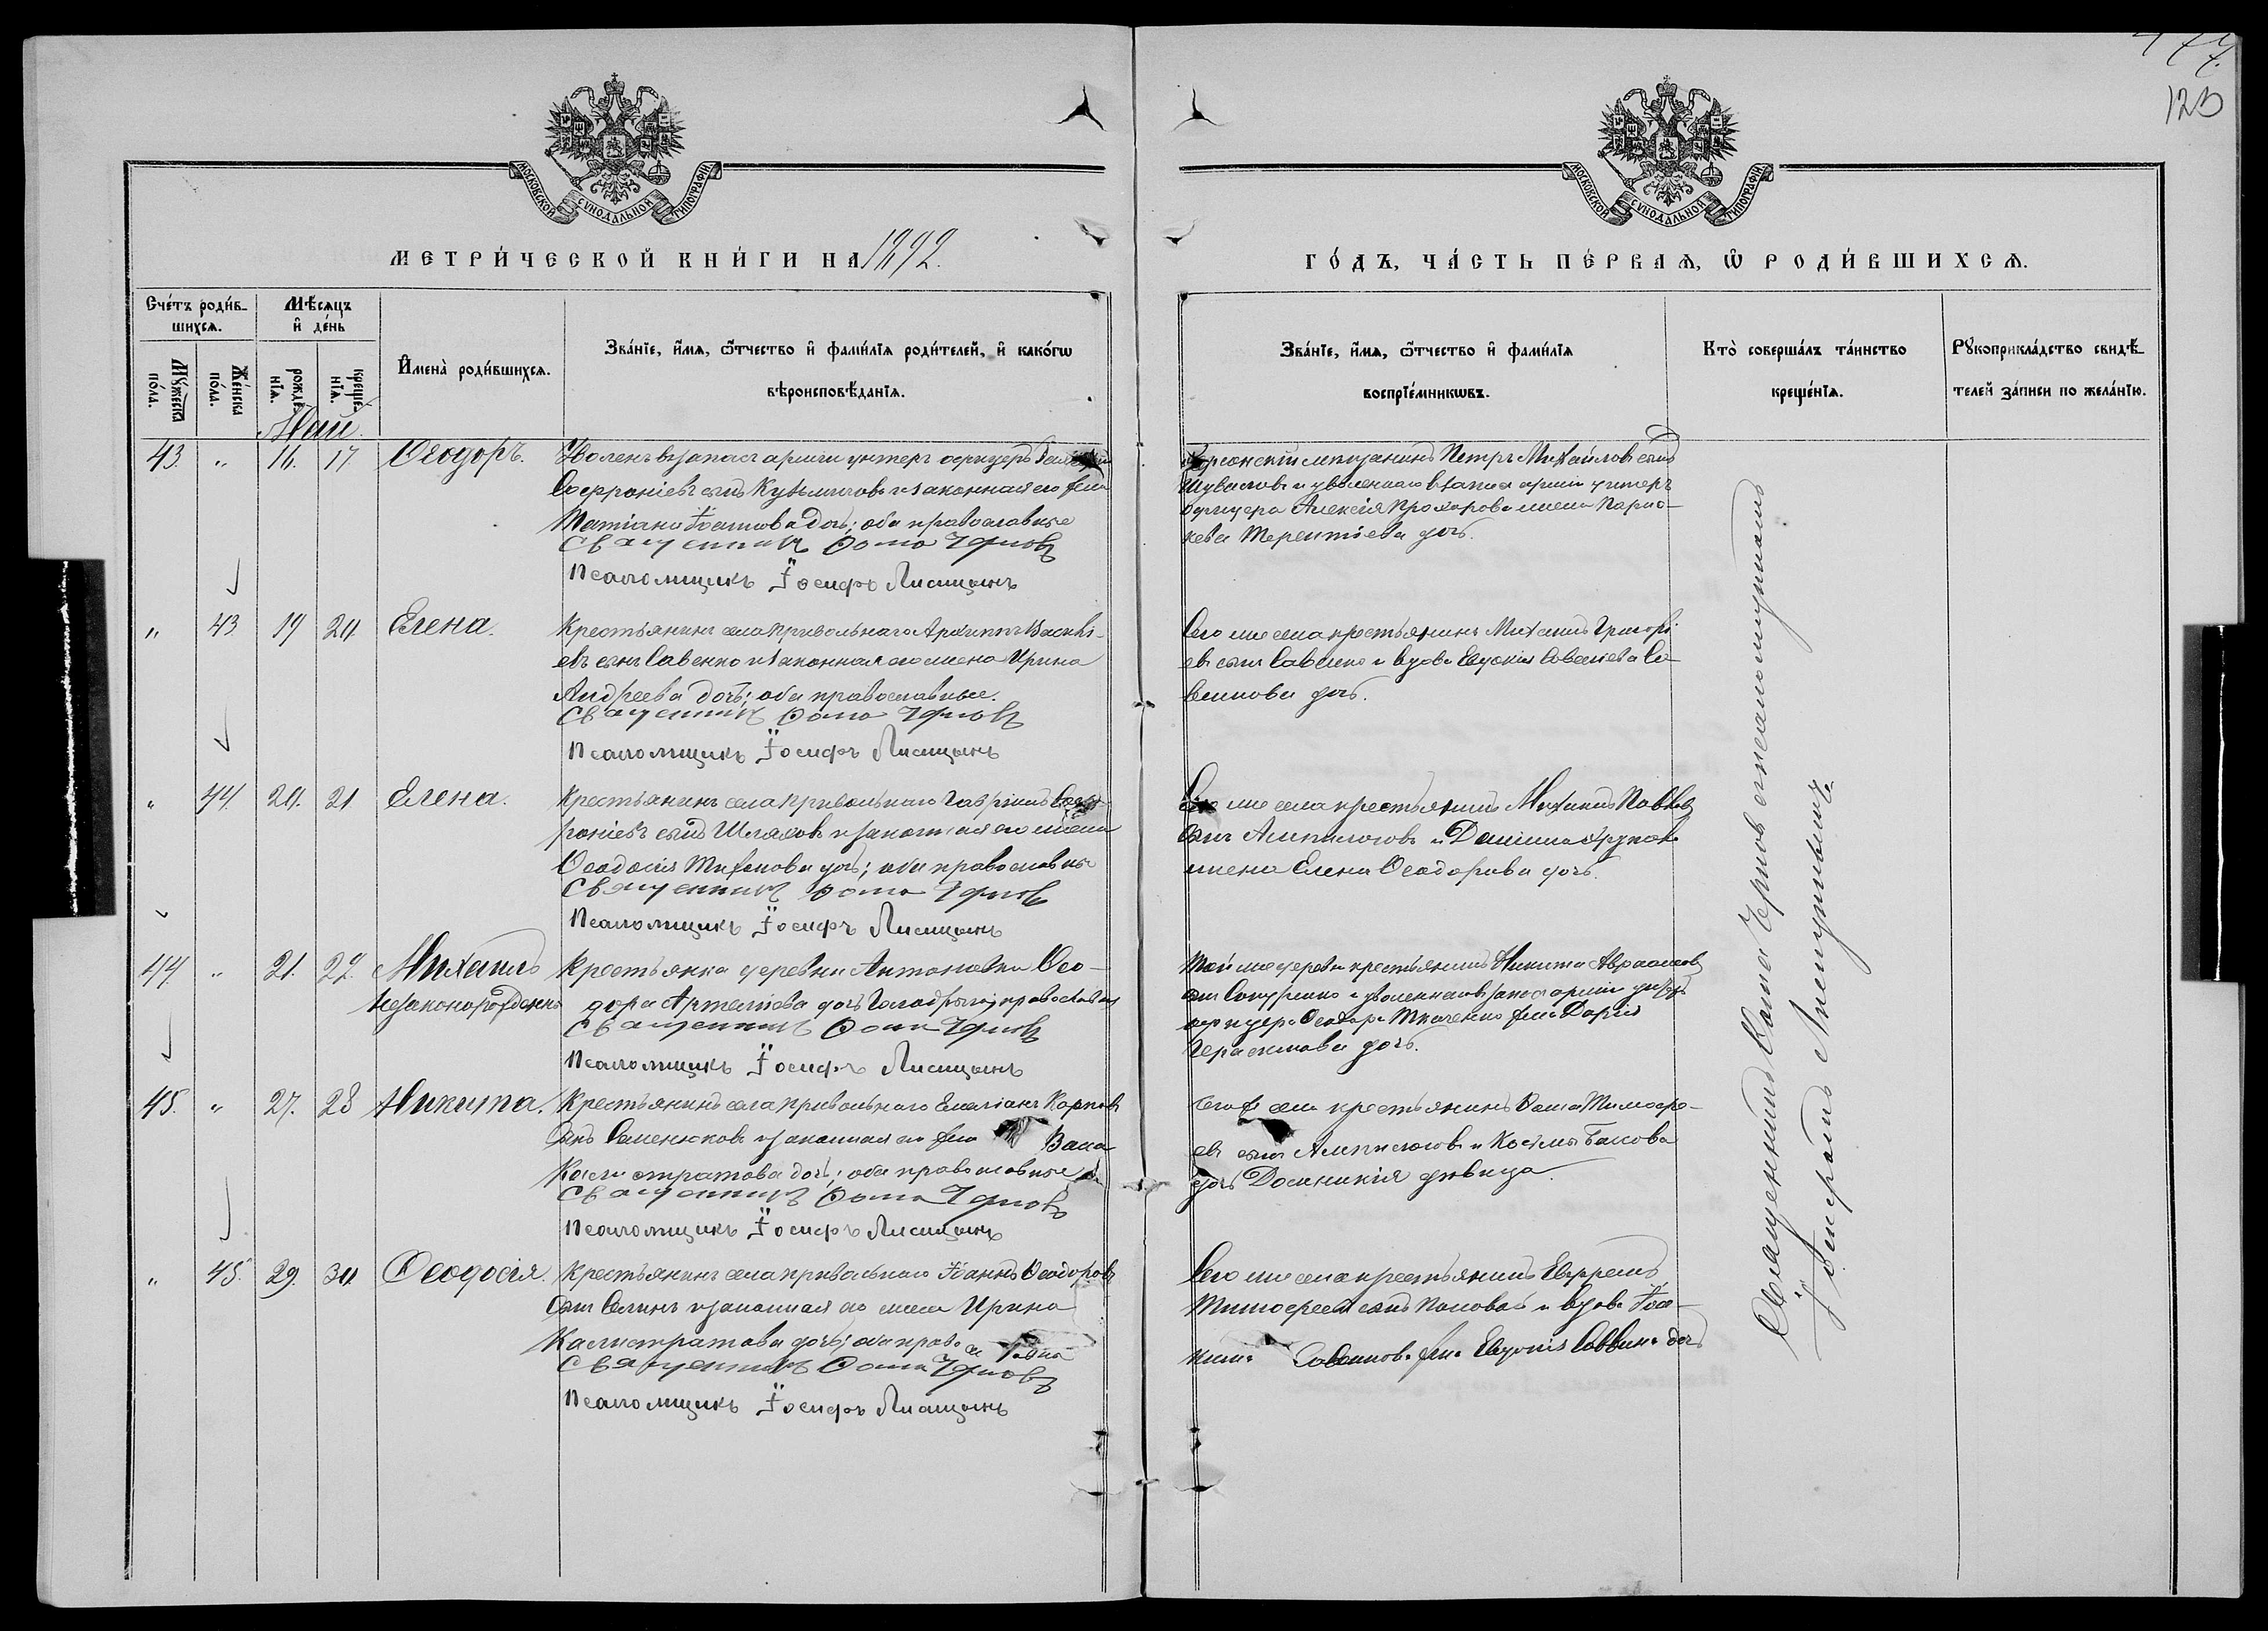 123
МОСКОВСКОЙ СѴНОДАЛЬНОЙ ТИПОГРАФІИ
МОСКОВСКОЙ СѴНОДАЛЬНОЙ ТИПОГРАФІИ
МЕТРИ́ЧЕСКОЙ КНИ́ГИ НА 1892.
ГО́ДЪ, ЧА́СТЬ ПЕ́РВАЯ, Ѡ РОДИ́ВШИХСЯ.
Сче́тъ роди́в-
шихся.
Мѣ́сяцъ
и҆ де́нь
Мꙋ́жеска
по́ла.
Же́нска
по́ла.
рожде́-
нїя.
креще́-
нїя.
И҆мена̀ роди́вшихся.
Зва́нїе, и҆́мя, ѻ҆́тчество и҆ фами́лїя роди́телей, и҆ како́гѡ
вѣроисповѣ́данїя.
Зва́нїе, и҆́мя, ѻ҆́тчество и҆ фами́лїя
воспрїе́мникѡвъ.
Кто̀ соверша́лъ та́инство
креще́нїя.
Рꙋкоприкла́дство свидѣ́-
телей за́писи по жела́нїю.
Май.
43. " 16. 17 Ѳеодоръ. Уволенъ въ запасъ арміи унтеръ офицеръ
Софроніевъ сынъ Кузьмичовъ и законная его жена
Татіана Іоаннова дочь; оба православные
Священникъ Ѳома Черновъ
Псаломщикъ Іосифъ Лисицынъ
Херсонскій мещанинъ Петръ Михайловъ сынъ
Шуваловъ и уволеннаго въ запасъ арміи унтеръ
офицера Алексія Прохорова жена Парас-
кева Терентіева дочь.
" 43 19 20 Елена. Крестьянинъ села Привольнаго Архиппъ Василі-
евъ сынъ Савенко и законная его жена Ирина
Андреева дочь; оба православные.
Священникъ Ѳома Черновъ
Псаломщикъ Іосифъ Лисицынъ
Того же села крестьянинъ Михаилъ Григорі-
евъ сынъ Савенко и вдова Евдокія Савелієва Са-
венкова дочь.
" 44 20. 21 Елена. Крестьянинъ села Привольнаго Гавріилъ Соф-
роніевъ сынъ Шляховъ и законная его жена
Ѳеодосія Тихонова дочь; оба православные
Священникъ Ѳома Черновъ
Псаломщикъ Іосифъ Лисицынъ
Того же села крестьянинъ Михаилъ Павловъ
сынъ Алпилоговъ и Даніила
жена Елена Ѳеодорова дочь.
44. " 21. 22. Михаилъ Крестьянка деревни Антоновки Ѳео-
незаконорожденъ дора Артеміева дочь православная
Священникъ Ѳома Черновъ
Псаломщикъ Іосифъ Лисицынъ
Той же деревни крестьянинъ Никита Авраамовъ
сынъ и уволеннаго въ запасъ арміи унтеръ
офицера Ѳеодора Ткаченко жена Дарія
Герасимова дочь.
45. " 27. 28 Никита. Крестьянинъ села Привольнаго Емеліанъ Карповъ
сынъ Семенюковъ и законная его жена Васса
Калистратова дочь; оба православные
Священникъ Ѳома Черновъ
Псаломщикъ Іосифъ Лисицынъ
Того же села крестьянинъ Ѳома Тимоѳе-
евъ сынъ Алпилоговъ и Космы Бакова
дочь Домникія дѣвица.
" 45. 29. 30. Ѳеодосія. Крестьянинъ села Привольнаго Іоаннъ Ѳеодоровъ
сынъ Селинъ и законная его жена Ирина
Калистратова дочь; оба православные
Священникъ Ѳома Черновъ
Псаломщикъ Іосифъ Лисицынъ
Того же села крестьянинъ Ефремъ
Тимоѳеевъ сынъ Поповъ и вдова Іоан-
нина жена Евдокія Саввина дочь
Священникъ Ѳома Черновъ съ псаломщикомъ
Іосифомъ Лисицынымъ.